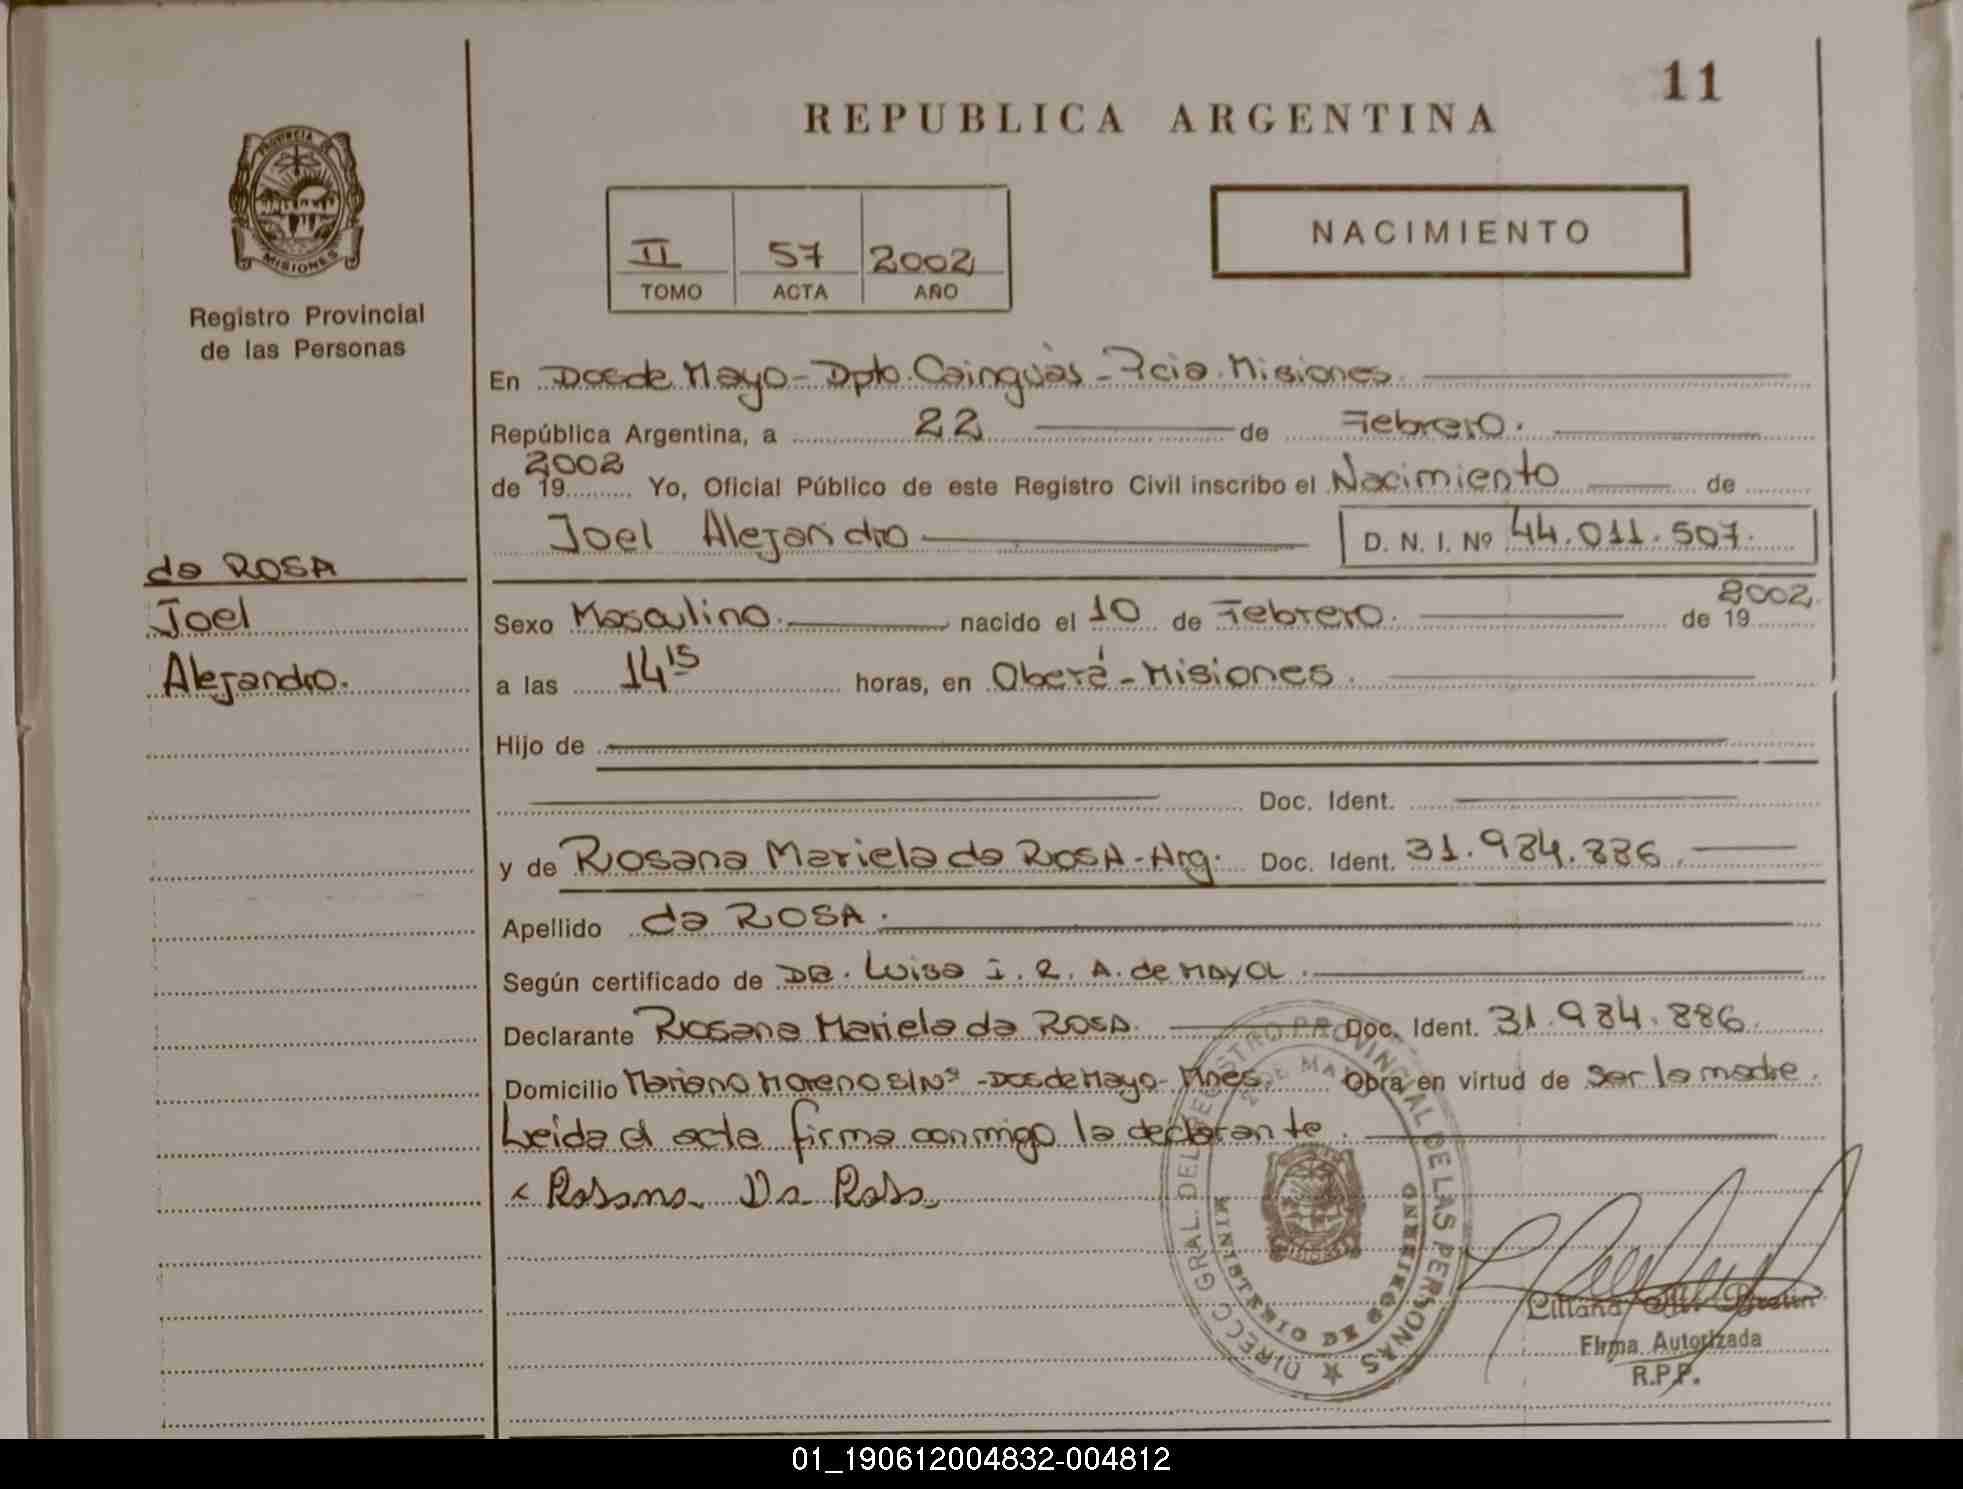 11
REPUBLICA ARGENTINA
PROVINCIA DE
MISIONES
Registro Provincial
de las Personas
II 57 2002
TOMO ACTA AÑO
NACIMIENTO
En Dos de Mayo - Dpto. Cainguás - Pcia. Misiones
República Argentina, a 22 de Febrero.
2002
de 19 Yo, Oficial Público de este Registro Civil inscribo el Nacimiento de
Joel Alejandro D. N. I. Nº 44.011.507.
da ROSA
Joel
Alejandro.
2002.
Sexo Masculino. nacido el 10 de Febrero. de 19
a las 14 15 horas, en Oberá - Misiones.
Hijo de
Doc. Ident.
y de Rosana Mariela da ROSA - Arg. Doc. Ident. 31.984.886.
Apellido da ROSA.
Según certificado de DRA. Luisa I. R. A. de MAYOL.
Declarante Rosana Mariela da ROSA. Doc. Ident. 31.984.886.
Domicilio Mariano Moreno S/Nº - Dos de Mayo - Mnes. Obra en virtud de ser la madre.
Leida el acta firma conmigo la declarante.
Rosana Da Rosa
DIRECC GRAL. DEL REGISTRO PROVINCIAL DE LAS PERSONAS
2 DE MAYO
MINISTERIO DE GOBIERNO
Liliana
Firma Autorizada
R.P.P.
01_190612004832-004812